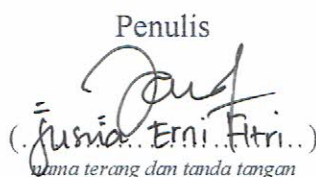 Penulis
(. Jusnia.. Erni. Fitri.. )
nama terang dan tanda tangan